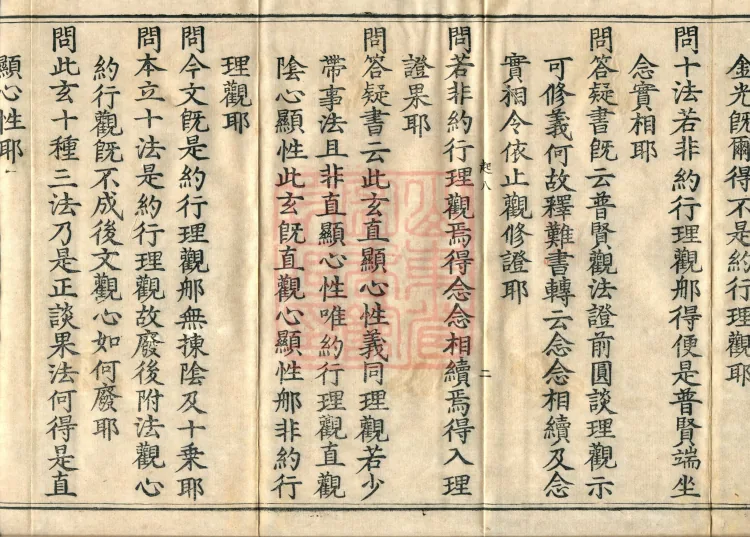 金光旣爾得不是約行理觀耶
問十法若非約行理觀那得便是普賢端坐
念實相耶
問答疑書旣云普賢觀法證前圓談理觀示
可修義何故釋難書轉云念念相續及念
實相令依止觀修證耶
起八
二
問若非約行理觀焉得念念相續焉得入理
證果耶
問答疑書云此玄直顯心性義同理觀若少
帶事法且非直顯心性唯約行理觀直觀
陰心顯性此玄旣直觀心顯性那非約行
理觀耶
問今文旣是約行理觀那無揀陰及十乘耶
問本立十法是約行理觀故廢後附法觀心
約行觀旣不成後文觀心如何廢耶
問此玄十種三法乃是正談果法何得是直
顯心性耶